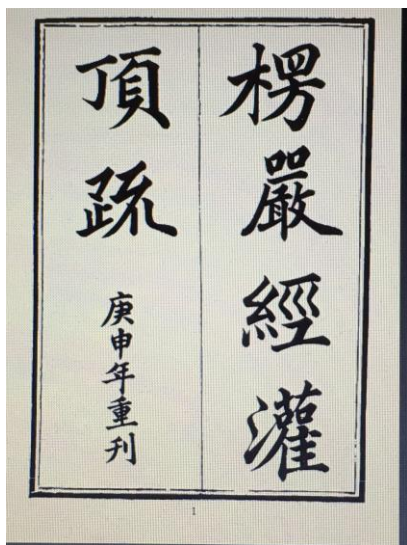 楞嚴經灌
頂疏
庚申年重刊
1